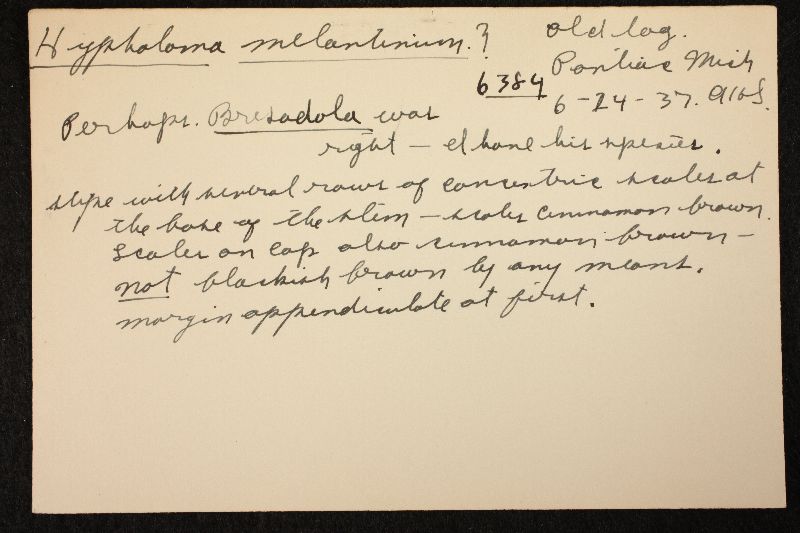 Hypholoma melantinum.?
old log.
Pontiac Mich
6384
6-24-37. AHS.
Perhaps. Bresadola was
right — I have his species.
stipe with several rows of concentric scales at
the base of the stem — scales cinnamon brown.
Scales on cap also cinnamon brown —
not blackish brown by any means.
margin appendiculate at first.